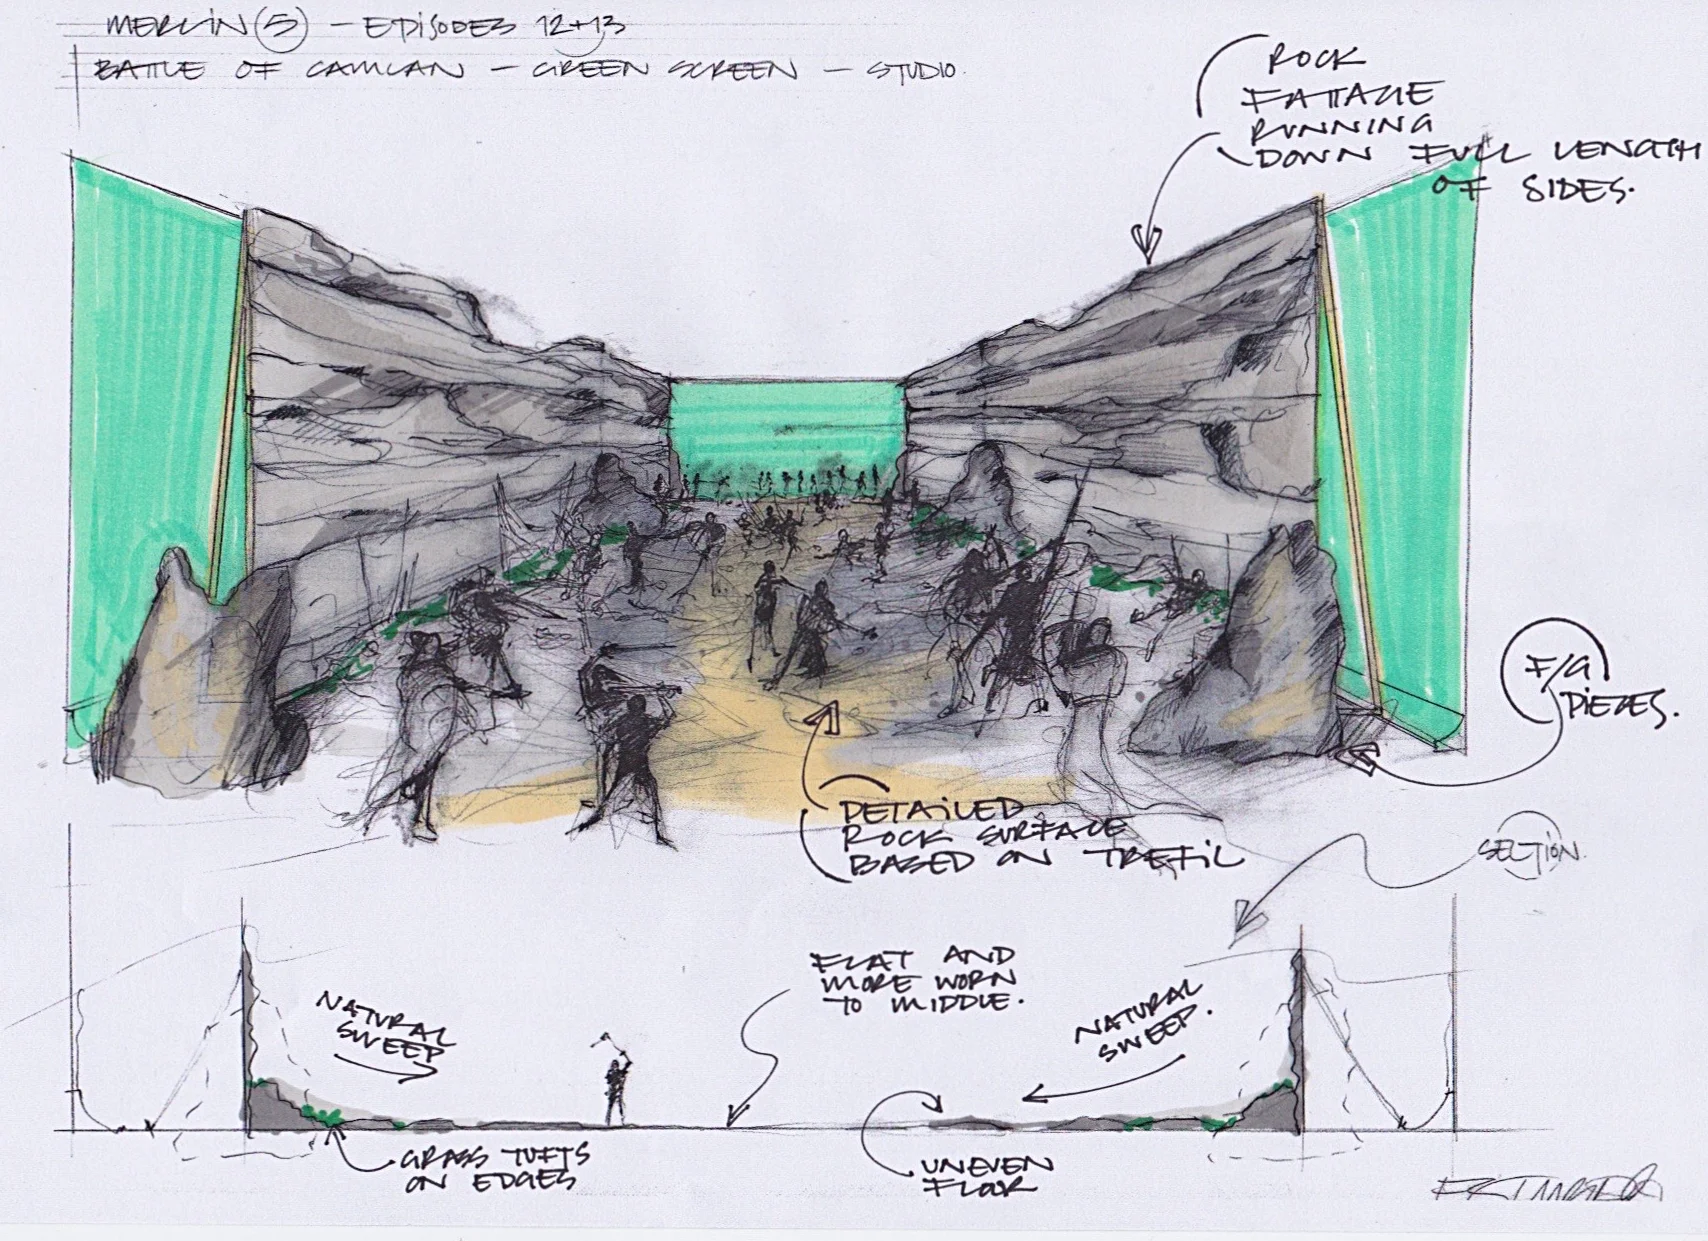 MERLIN (5) - EPISODES 12+13
BATTLE OF CAMLAN - GREEN SCREEN - STUDIO.
ROCK
FATTACIE
RUNNING
DOWN FULL LENGTH
OF SIDES.
F/G
PIECES.
DETAILED
ROCK SURFACE
BASED ON TREFIL
SECTION.
FLAT AND
MORE WORN
TO MIDDLE.
NATURAL
SWEEP
NATURAL
SWEEP.
GRASS TUFTS
ON EDGES
UNEVEN
FLOOR